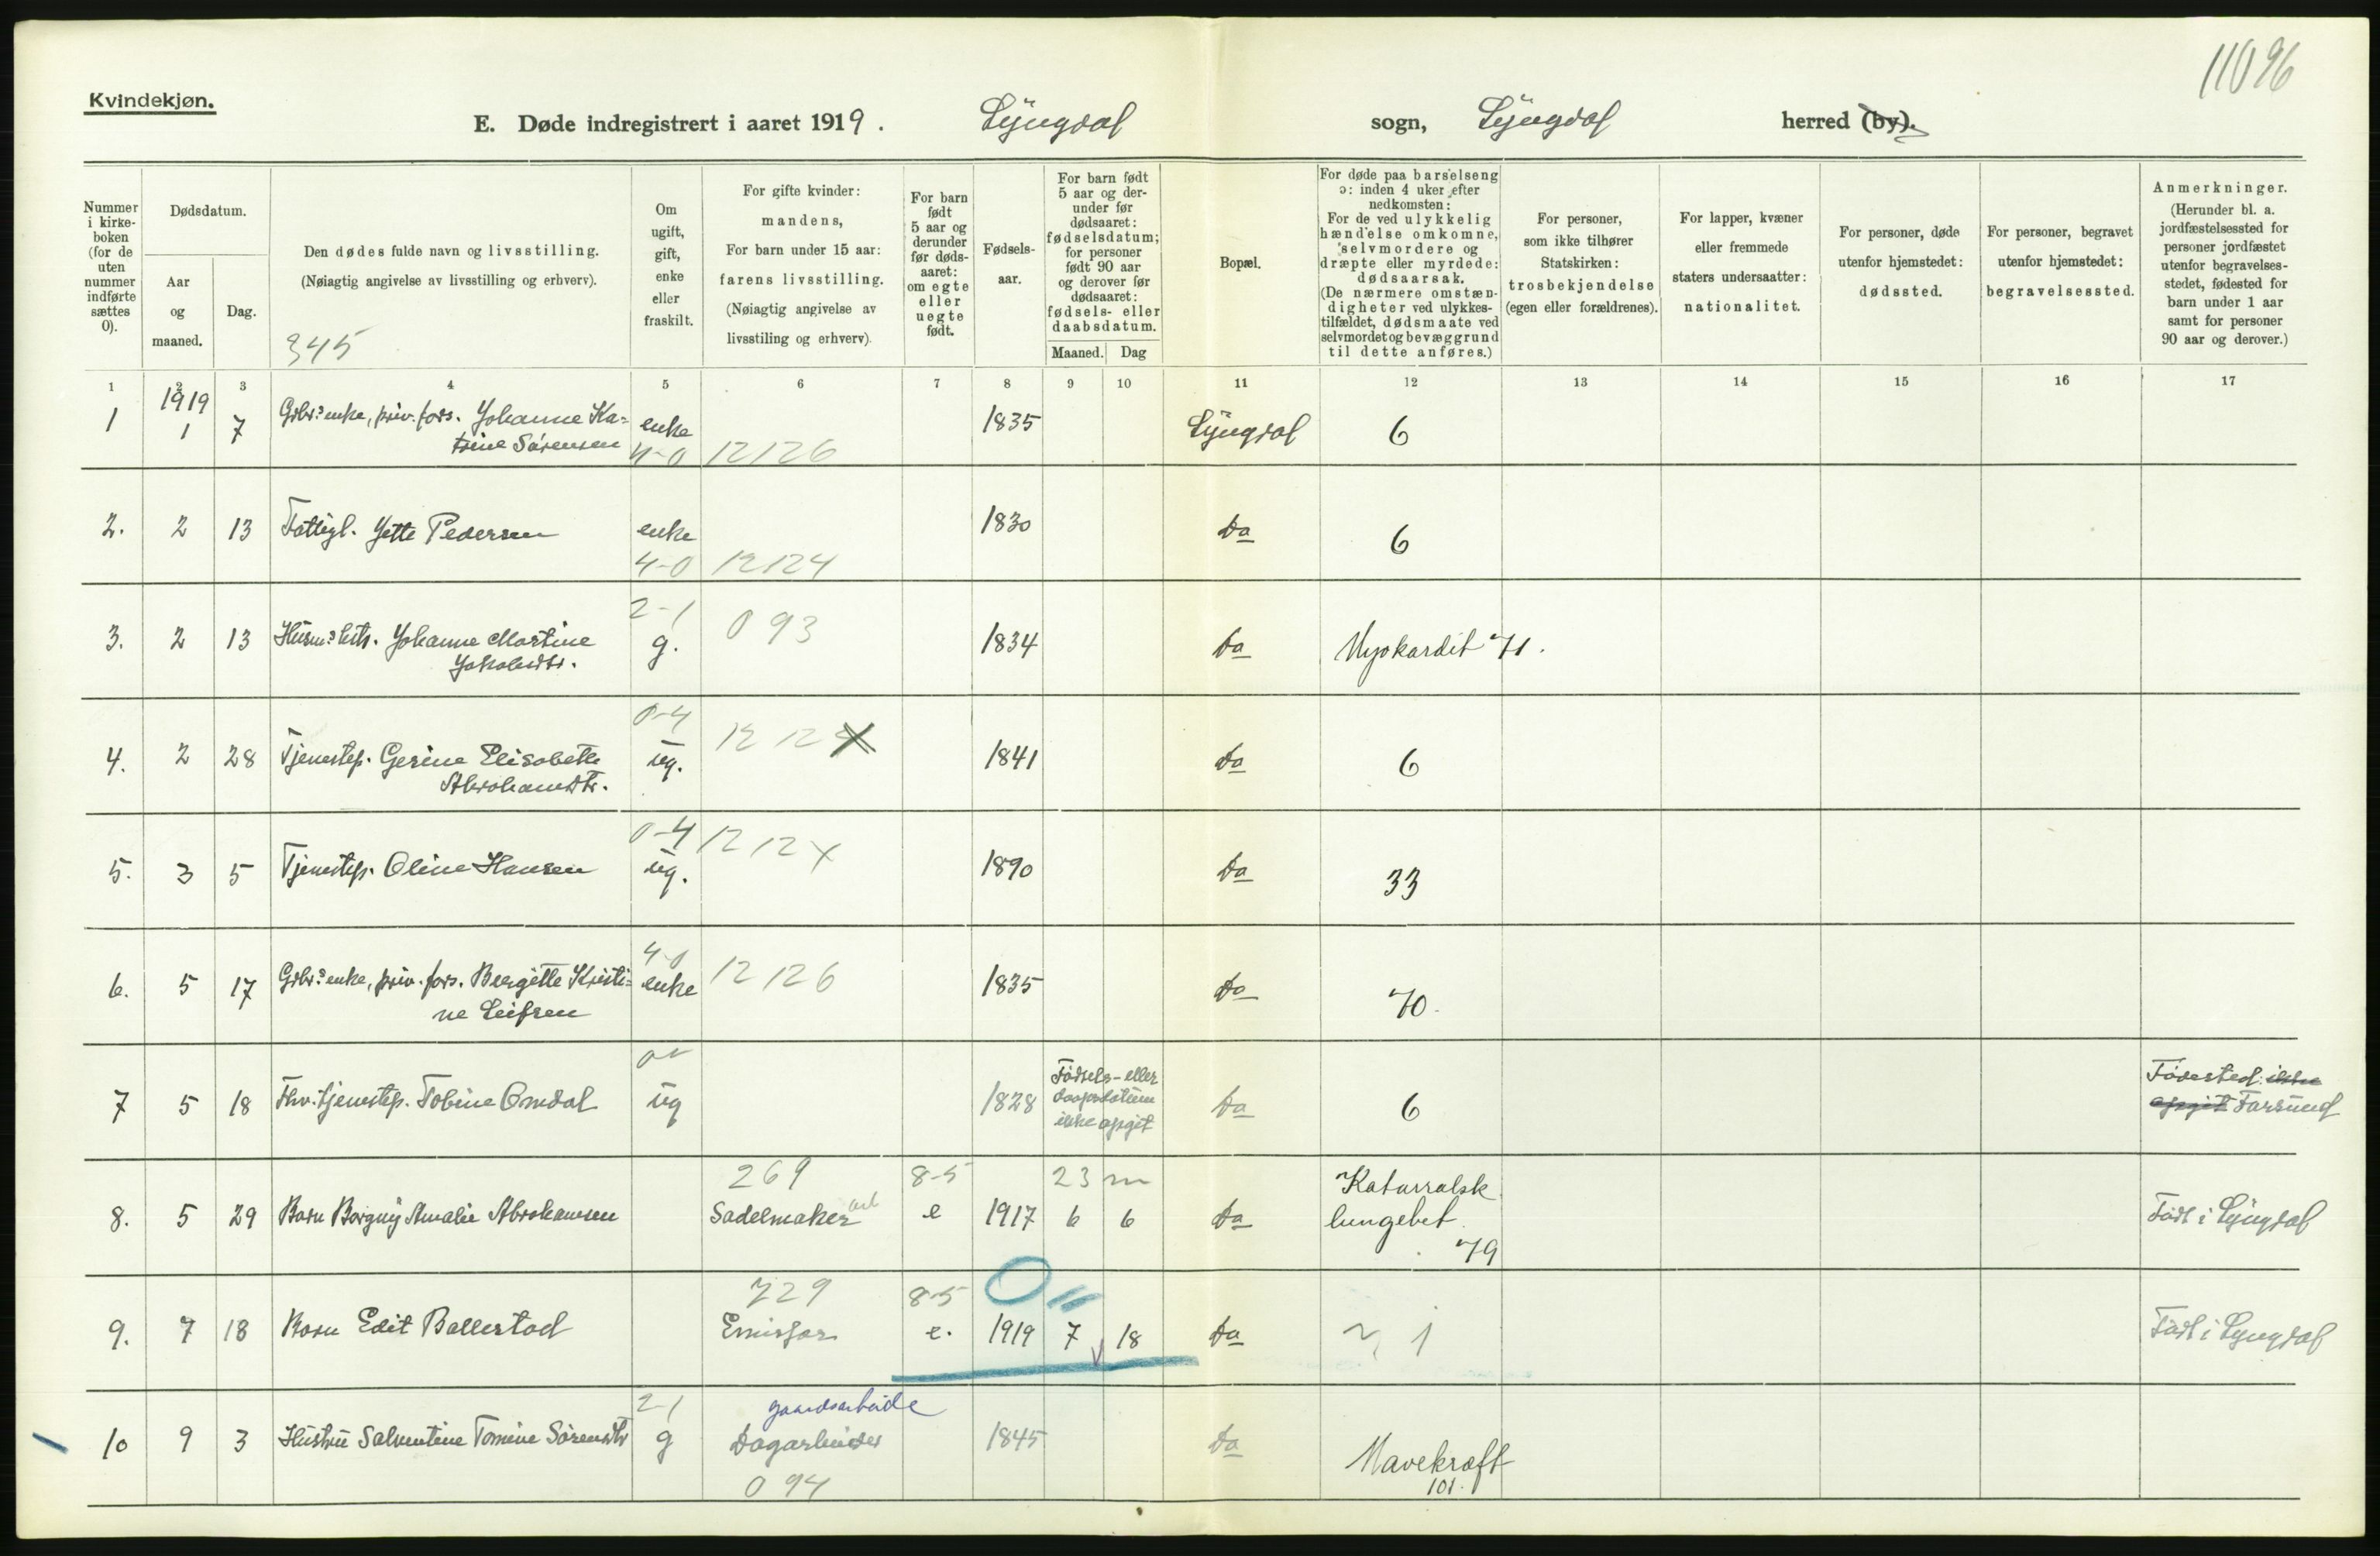 11096
Kvindekjøn.
E. Døde indregistrert i aaret 1919. Lyngdal sogn, Lyngdal herred (by).
Nummer i kirke-boken (for de uten nummer indførte sættes 0).
Dødsdatum.
Aar og maaned.
Dag.
Den dødes fulde navn og livsstilling.
(Nøiagtig angivelse av livsstilling og erhverv).
345
Om ugift, gift, enke eller fraskilt.
For gifte kvinder: mandens,
For barn under 15 aar: farens livsstilling.
(Nøiagtig angivelse av livsstiling og erhverv).
For barn født 5 aar og derunder før døds-aaret: om egte eller uegte født.
Fødsels-aar.
For barn født 5 aar og der-under før dødsaaret: fødselsdatum; for personer født 90 aar og derover før dødsaaret: fødsels- eller daabsdatum.
Maaned. Dag
Bopæl.
For døde paa barselseng ɔ: inden 4 uker efter nedkomsten:
For de ved ulykkelig hændelse omkomne, selvmordere og dræpte eller myrdede: dødsaarsak.
(De nærmere omstæn-digheter ved ulykkes-tilfældet, dødsmaate ved selvmordet og bevæggrund til dette anføres.)
For personer, som ikke tilhører Statskirken: trosbekjendelse (egen eller forældrenes).
For lapper, kvæner eller fremmede staters undersaatter: nationalitet.
For personer, døde utenfor hjemstedet: dødssted.
For personer, begravet utenfor hjemstedet: begravelsessted.
Anmerkninger.
(Herunder bl. a. jordfæstelsessted for personer jordfæstet utenfor begravelses-stedet, fødested for barn under 1 aar samt for personer 90 aar og derover.)
1 2 3 4 5 6 7 8 9 10 11 12 13 14 15 16 17
1919
1 1 7 Grbr.s enke, priv. fors. Johanne Ka= enke 1835 Lyngdal 6
trine Sørensen 4-0 12126
2. 2 13 Fattigl. Jette Pedersen enke 1830 Do 6
4-0 12124
2-1 093
3. 2 13 Husm.s hstr. Johanne Martine g. 1834 Do Myokardit 71.
Jakobsdtr.
0-4 1212X
4. 2 28 Tjenestep. Gerine Elisabeth ug. 1841 Do 6
Abrahamsdtr.
0-4 1212X
5. 3 5 Tjenestep. Oline Hansen ug. 1890 Do 33
4-0 12126
6. 5 17 Grbr.s enke, priv. fors. Bergitte Kristi= enke 1835 Do 70.
ne Leifsen
7 5 18 Fhv. tjenestep. Tobine Omdal ug 1828 Fødsels- eller daapsdatum ikke opgit Do 6 Fødested: ikke opgit Farsund
269 8-5 23 m
8. 5 29 Barn Borgny Amalie Abrahamsen Sadelmaker e 1917 6 6 Do Katarralsk lungebet. 79 Født i Lyngdal
729 8-5 0 11
9. 7 18 Barn Edit Ballestad Emissær e. 1919 7 18 Do 1 Født i Lyngdal
2-1 gaardsarbeide
10 9 3 Hustru Salventine Tomine Sørensdtr g Dagarbeider 1845 Do Mavekræft
094 101.